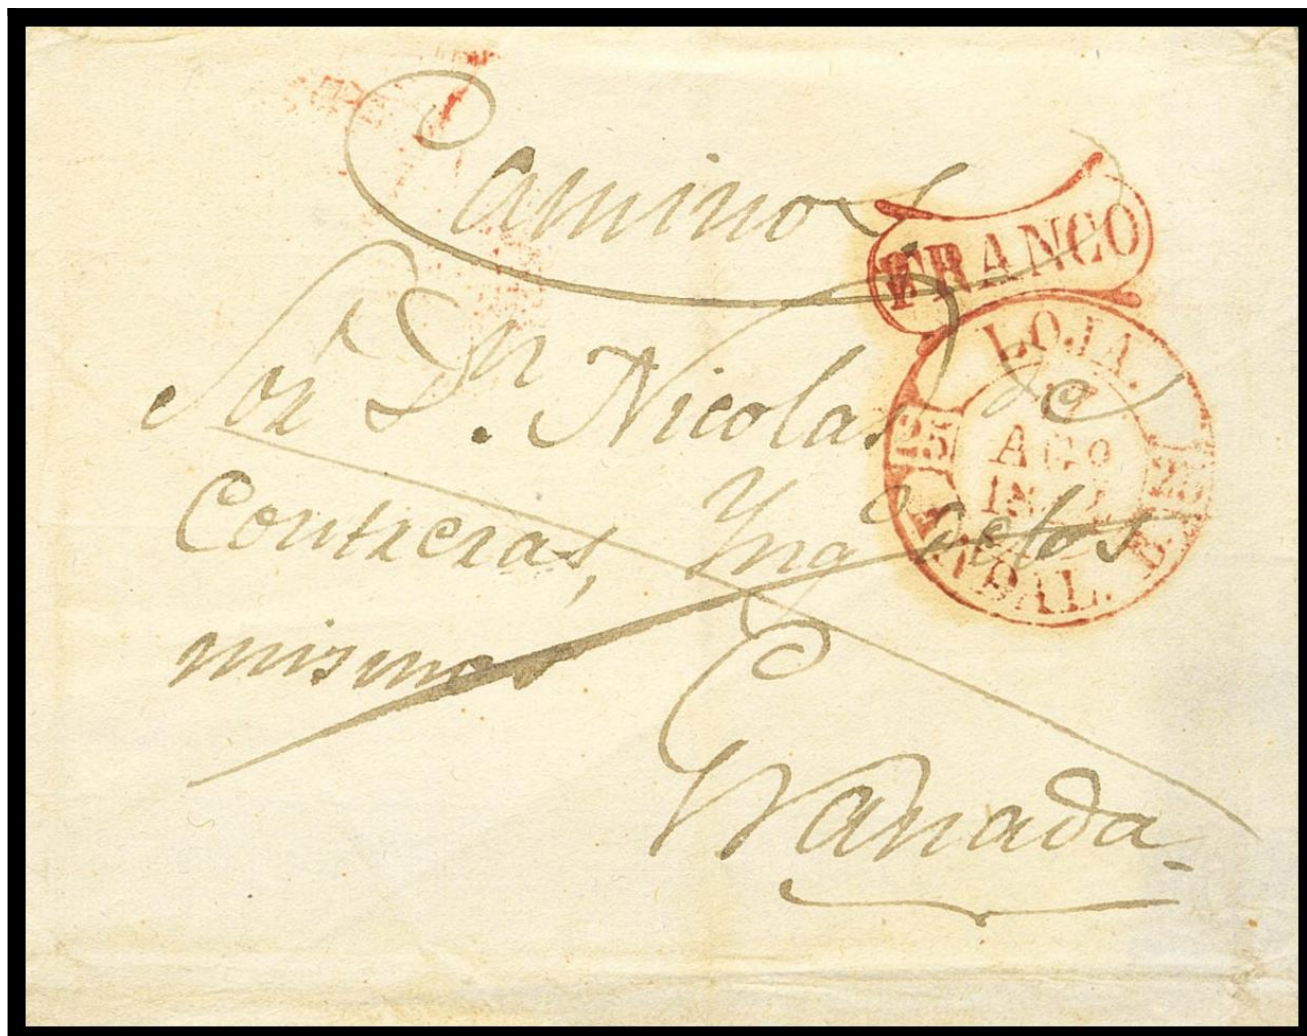 Caminos
FRANCO
LOJA.
AGO
Sor Dn. Nicolas de
Contreras, Yngo de los
mismos
ANDAL. B.
Granada.